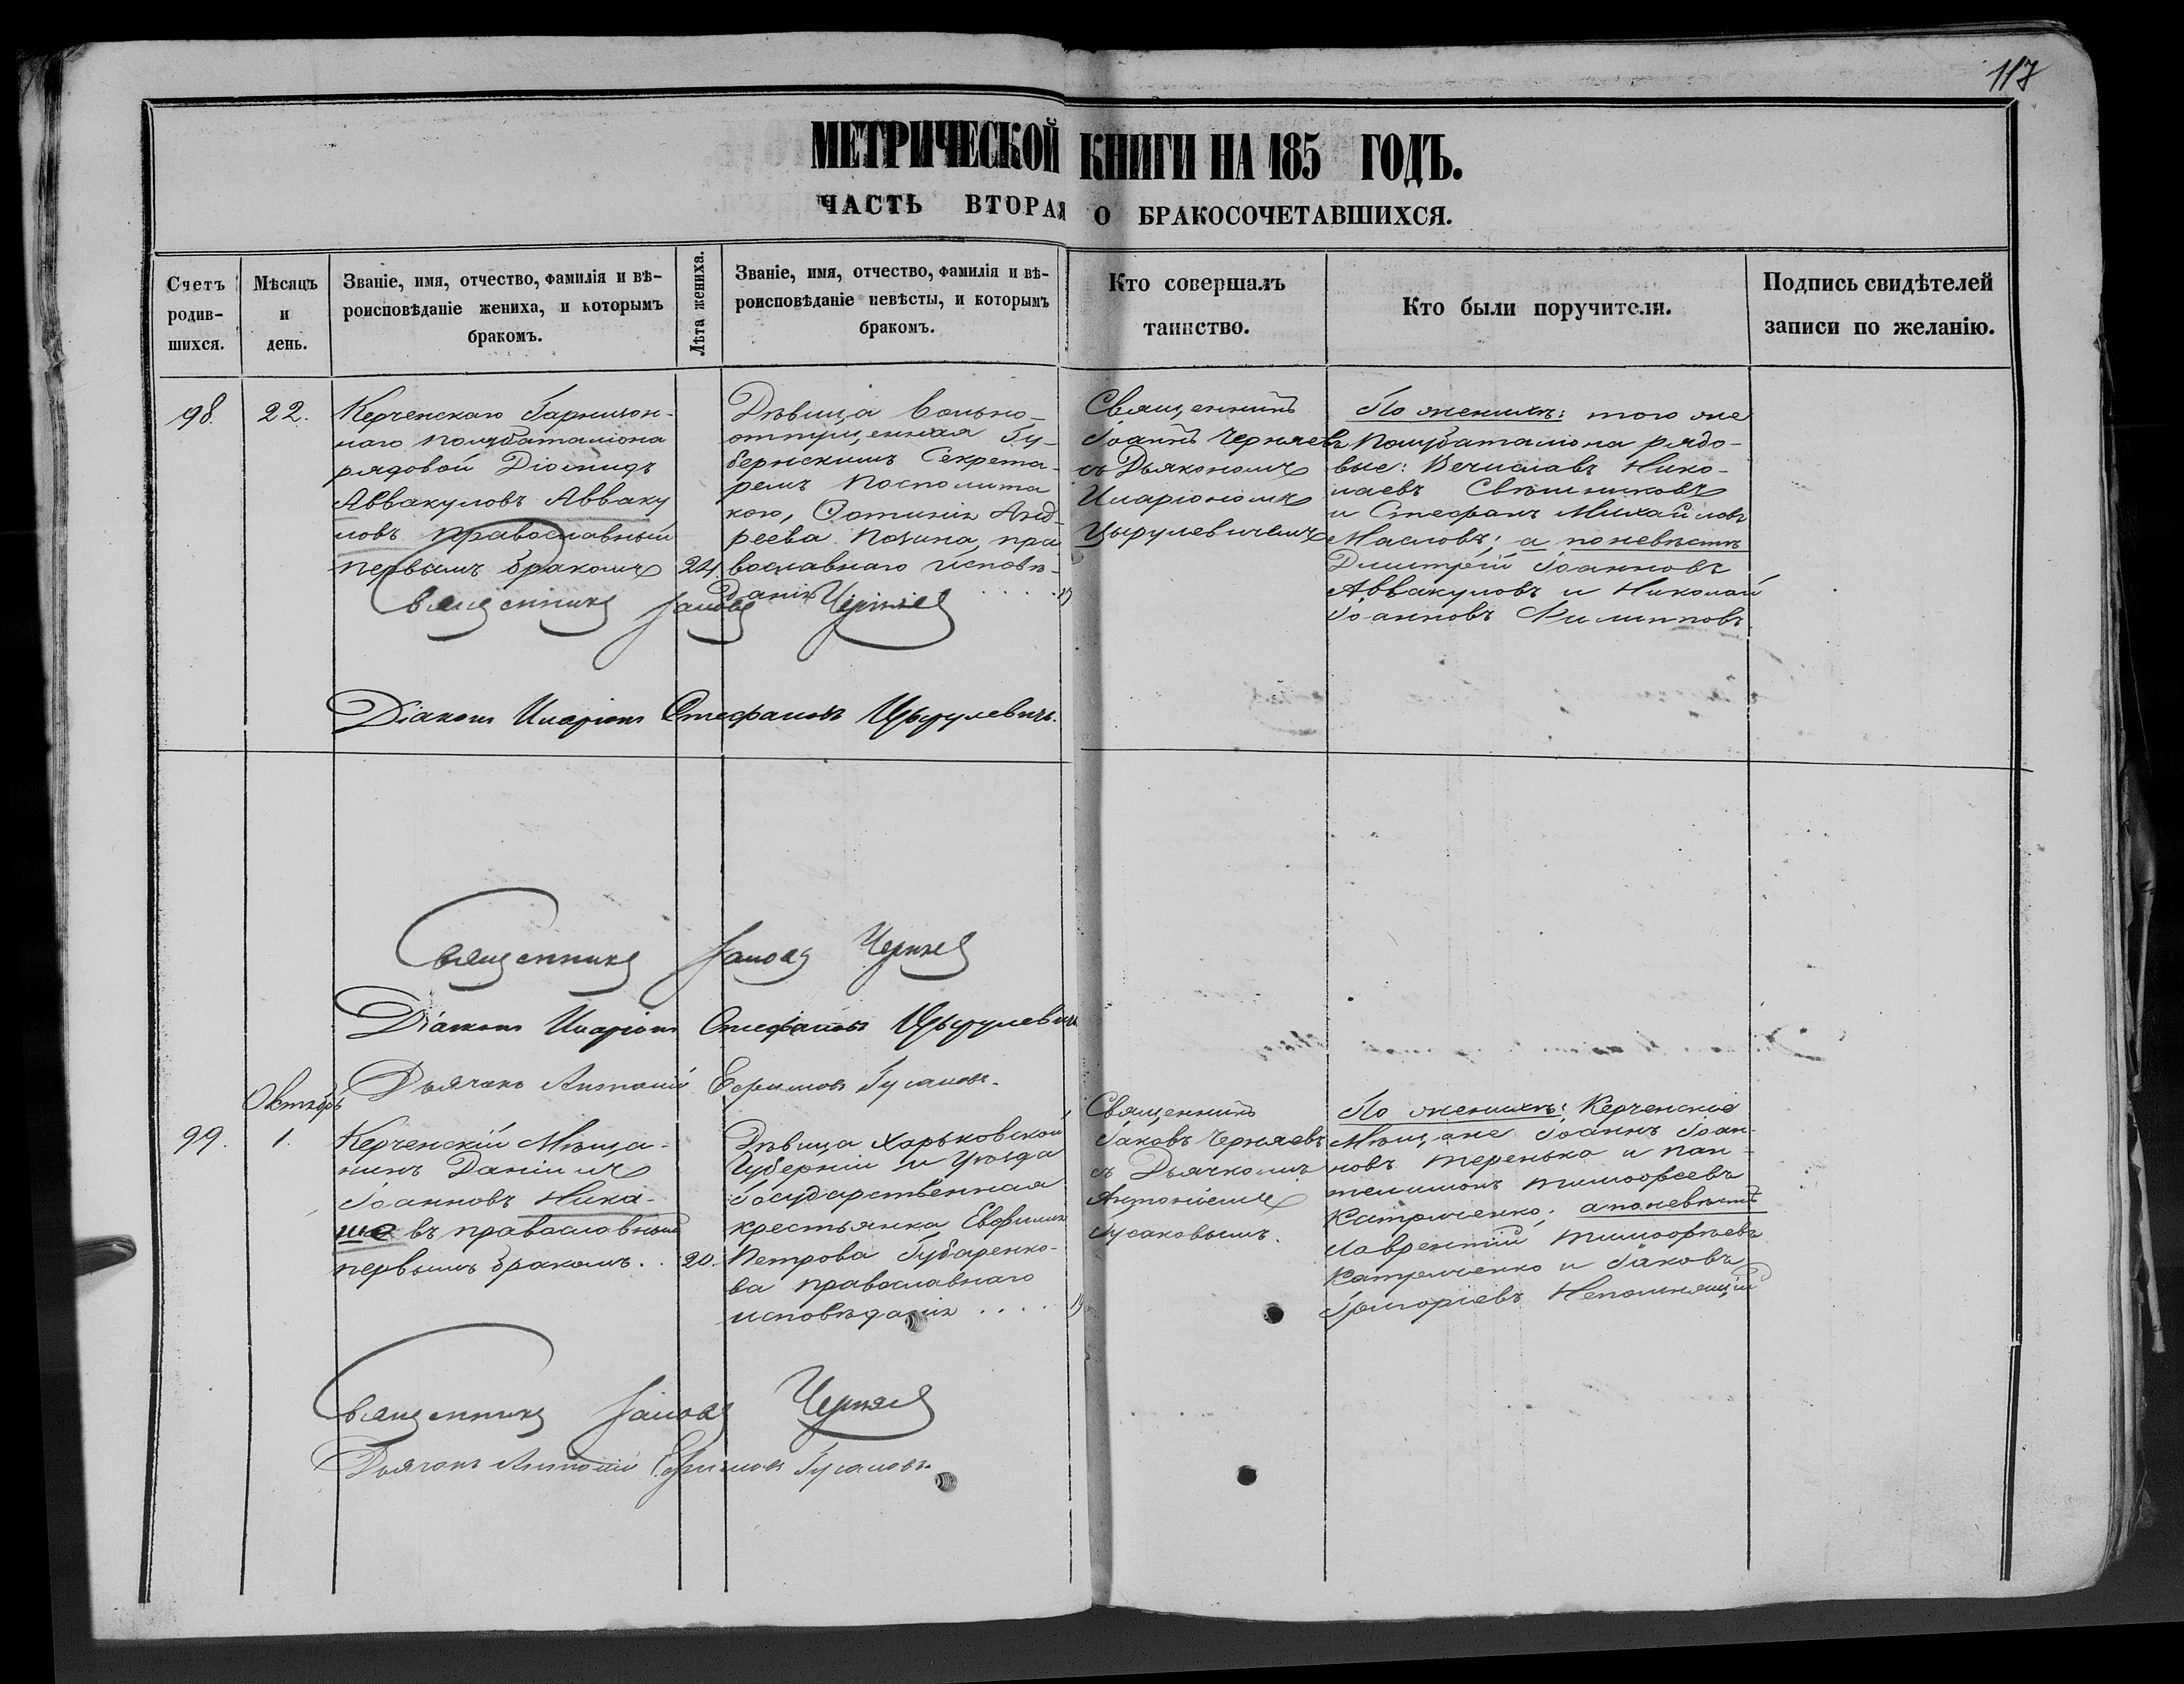 117
МЕТРИЧЕСКОЙ КНИГИ НА 185 ГОДЪ.
ЧАСТЬ ВТОРАЯ О БРАКОСОЧЕТАВШИХСЯ.
Счетъ родив-шихся.
Мѣсяцъ и день.
Званіе, имя, отчество, фамилія и вѣ-
роисповѣданіе жениха, и которымъ
бракомъ.
Лѣта жениха.
Званіе, имя, отчество, фамилія и вѣ-
роисповѣданіе невѣсты, и которымъ
бракомъ.
Кто совершалъ
таинство.
Кто были поручители.
Подпись свидѣтелей
записи по желанію.
98.
22.
Керченскаго Гарнизон-
наго полубаталіона
рядовой Діомидъ
Аввакумовъ Авваку
мовъ православный
первымъ бракомъ
24
Дѣвица вольно-
отпущенная Гу-
бернскимъ Секрета-
ремъ
Андреева
православнаго исповѣ-
данія
Священникъ
Іоаннъ Черняевъ
съ Дьякономъ
Иларіономъ
Цырулевичемъ
По женихѣ: того же
полубаталіона рядо-
вые: Вечиславъ Нико-
лаевъ Свѣшниковъ
и Стефанъ Михайловъ
Масловъ; а по невѣстѣ
Димитрій Іоанновъ
Аввакумовъ и Николай
Іоанновъ Филипповъ
Священникъ Іаковъ Черняев
Діаконъ Иларіонъ Стефановъ Цырулевичъ.
Священникъ Іаковъ Черняев
Діаконъ Иларіонъ Стефановъ Цырулевичъ
Дьячокъ Антоній Ефимовъ Гусаковъ.
Октябрь
99.
1.
Керченскій Мѣща-
нинъ Даніилъ
Іоанновъ Ника-
шевъ православный
первымъ бракомъ.
20.
Дѣвица Харьковской
Губерніи и Уѣзда
Государственная
крестьянка Евфимія
Петрова Губаренко-
ва православнаго
исповѣданія
Священникъ
Іаковъ Черняевъ
съ Дьячкомъ
Антоніемъ
Гусаковымъ.
По женихѣ: Керченскіе
Мѣщане Іоаннъ Іоан-
новъ Теренько и Пан-
телимонъ Тимофеевъ
Катриченко; а по невѣстѣ
Лаврентій Тимофѣевъ
Катриченко и Іаковъ
Григоріевъ Непомнящій
Священникъ Іаковъ Черняев
Дьячокъ Антоній Ефимовъ Гусаковъ.